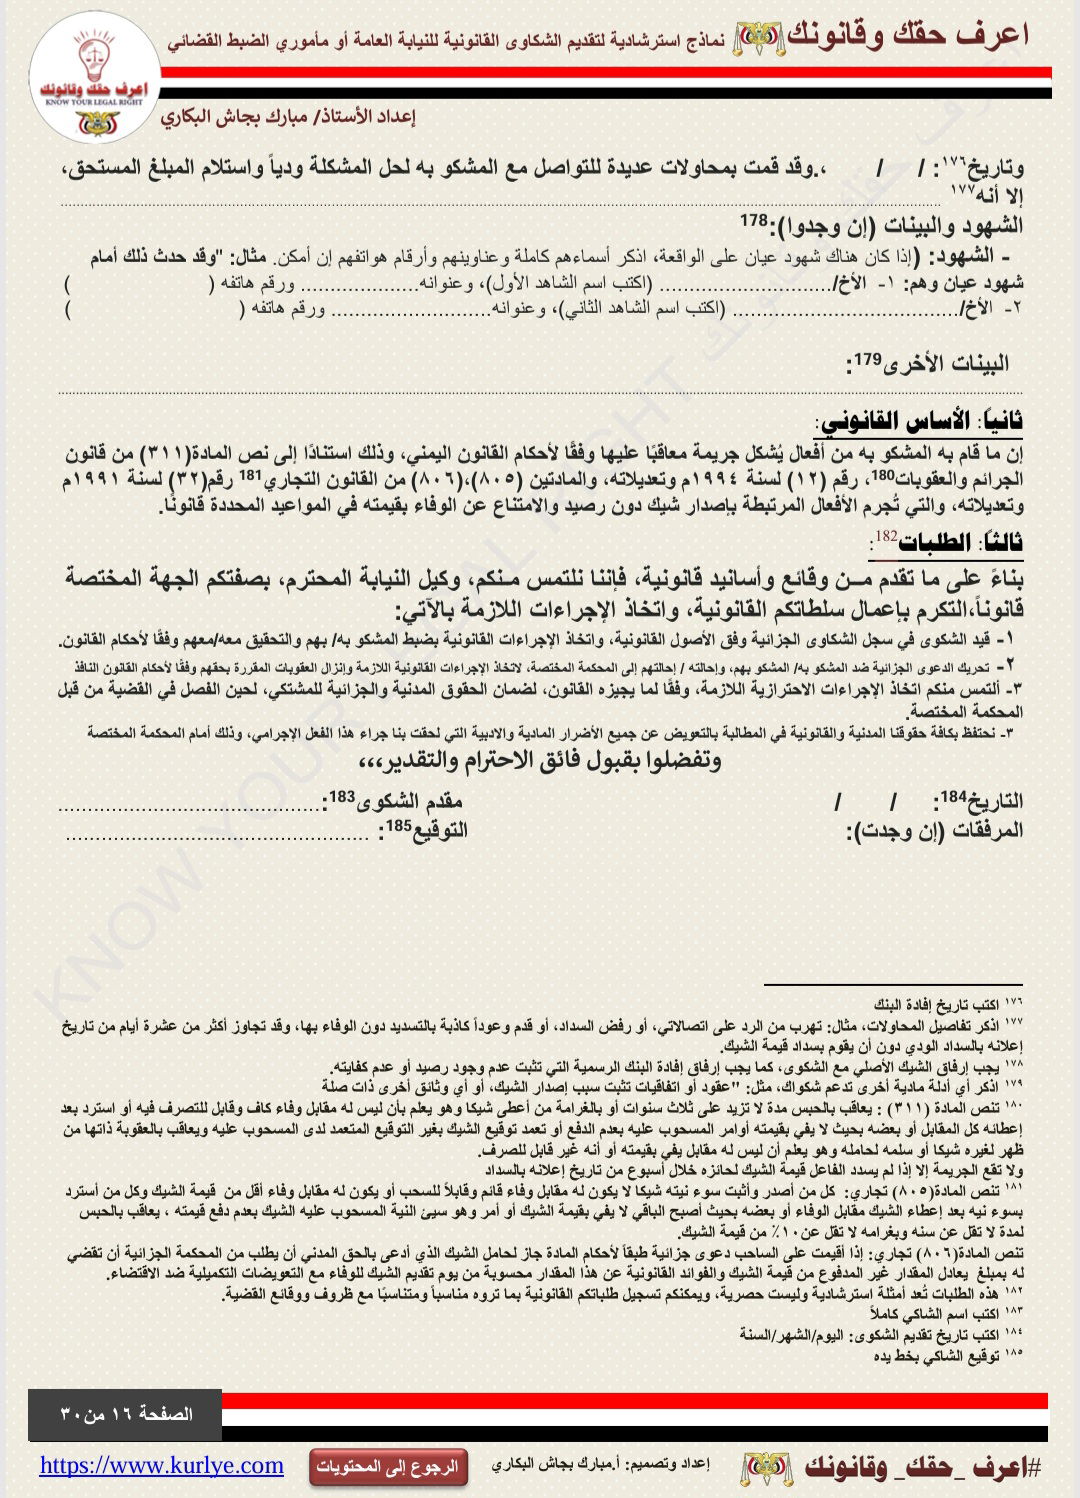 اعرف حقك وقانونك نماذج استرشادية لتقديم الشكاوى القانونية للنيابة العامة أو مأموري الضبط القضائي
اعرف حقك وقانونك
KNOW YOUR LEGAL RIGHT
إعداد الأستاذ/ مبارك بجاش البكاري
وتاريخ١٧٦: / / ،.وقد قمت بمحاولات عديدة للتواصل مع المشكو به لحل المشكلة ودياً واستلام المبلغ المستحق،
إلا أنه١٧٧ ........................................................................
الشهود والبينات (إن وجدوا):178
- الشهود: (إذا كان هناك شهود عيان على الواقعة، اذكر أسماءهم كاملة وعناوينهم وأرقام هواتفهم إن أمكن. مثال: "وقد حدث ذلك أمام
شهود عيان وهم: ١- الأخ/............................. (اكتب اسم الشاهد الأول)، وعنوانه.................... ورقم هاتفه ( )
٢- الأخ/...................................... (اكتب اسم الشاهد الثاني)، وعنوانه........................... ورقم هاتفه ( )
البينات الأخرى179:
........................................................................
ثانياً: الأساس القانوني:
إن ما قام به المشكو به من أفعال يُشكل جريمة معاقبًا عليها وفقًا لأحكام القانون اليمني، وذلك استنادًا إلى نص المادة(٣١١) من قانون
الجرائم والعقوبات180، رقم (١٢) لسنة ١٩٩٤م وتعديلاته، والمادتين (٨٠٥)،(٨٠٦) من القانون التجاري181 رقم(٣٢) لسنة ١٩٩١م
وتعديلاته، والتي تُجرم الأفعال المرتبطة بإصدار شيك دون رصيد والامتناع عن الوفاء بقيمته في المواعيد المحددة قانونًا.
ثالثاً: الطلبات182:
بناءً على ما تقدم مــن وقائع وأسانيد قانونية، فإننا نلتمس منـكم، وكيل النيابة المحترم، بصفتكم الجهة المختصة
قانوناً،التكرم بإعمال سلطاتكم القانونية، واتخاذ الإجراءات اللازمة بالآتي:
١- قيد الشكوى في سجل الشكاوى الجزائية وفق الأصول القانونية، واتخاذ الإجراءات القانونية بضبط المشكو به/ بهم والتحقيق معه/معهم وفقًا لأحكام القانون.
٢- تحريك الدعوى الجزائية ضد المشكو به/ المشكو بهم، وإحالته / إحالتهم إلى المحكمة المختصة، لاتخاذ الإجراءات القانونية اللازمة وإنزال العقوبات المقررة بحقهم وفقًا لأحكام القانون النافذ
٣- ألتمس منكم اتخاذ الإجراءات الاحترازية اللازمة، وفقًا لما يجيزه القانون، لضمان الحقوق المدنية والجزائية للمشتكي، لحين الفصل في القضية من قبل
المحكمة المختصة.
٣- نحتفظ بكافة حقوقنا المدنية والقانونية في المطالبة بالتعويض عن جميع الأضرار المادية والادبية التي لحقت بنا جراء هذا الفعل الإجرامي، وذلك أمام المحكمة المختصة
وتفضلوا بقبول فائق الاحترام والتقدير،،،
التاريخ184: / / مقدم الشكوى183:............................................
المرفقات (إن وجدت): التوقيع185: ...................................................
١٧٦ اكتب تاريخ إفادة البنك
١٧٧ اذكر تفاصيل المحاولات، مثال: تهرب من الرد على اتصالاتي، أو رفض السداد، أو قدم وعوداً كاذبة بالتسديد دون الوفاء بها، وقد تجاوز أكثر من عشرة أيام من تاريخ
إعلانه بالسداد الودي دون أن يقوم بسداد قيمة الشيك.
١٧٨ يجب إرفاق الشيك الأصلي مع الشكوى، كما يجب إرفاق إفادة البنك الرسمية التي تثبت عدم وجود رصيد أو عدم كفايته.
١٧٩ اذكر أي أدلة مادية أخرى تدعم شكواك، مثل: "عقود أو اتفاقيات تثبت سبب إصدار الشيك، أو أي وثائق أخرى ذات صلة
١٨٠ تنص المادة (٣١١) : يعاقب بالحبس مدة لا تزيد على ثلاث سنوات أو بالغرامة من أعطى شيكا وهو يعلم بأن ليس له مقابل وفاء كاف وقابل للتصرف فيه أو استرد بعد
إعطائه كل المقابل أو بعضه بحيث لا يفي بقيمته أوامر المسحوب عليه بعدم الدفع أو تعمد توقيع الشيك بغير التوقيع المتعمد لدى المسحوب عليه ويعاقب بالعقوبة ذاتها من
ظهر لغيره شيكا أو سلمه لحامله وهو يعلم أن ليس له مقابل يفي بقيمته أو أنه غير قابل للصرف.
ولا تقع الجريمة إلا إذا لم يسدد الفاعل قيمة الشيك لحائزه خلال أسبوع من تاريخ إعلانه بالسداد
١٨١ تنص المادة(٨٠٥) تجاري: كل من أصدر وأثبت سوء نيته شيكا لا يكون له مقابل وفاء قائم وقابلاً للسحب أو يكون له مقابل وفاء أقل من قيمة الشيك وكل من أسترد
بسوء نيه بعد إعطاء الشيك مقابل الوفاء أو بعضه بحيث أصبح الباقي لا يفي بقيمة الشيك أو أمر وهو سيئ النية المسحوب عليه الشيك بعدم دفع قيمته ، يعاقب بالحبس
لمدة لا تقل عن سنه وبغرامه لا تقل عن١٠٪ من قيمة الشيك.
تنص المادة(٨٠٦) تجاري: إذا أقيمت على الساحب دعوى جزائية طبقاً لأحكام المادة جاز لحامل الشيك الذي أدعى بالحق المدني أن يطلب من المحكمة الجزائية أن تقضي
له بمبلغ يعادل المقدار غير المدفوع من قيمة الشيك والفوائد القانونية عن هذا المقدار محسوبة من يوم تقديم الشيك للوفاء مع التعويضات التكميلية ضد الاقتضاء.
١٨٢ هذه الطلبات تُعد أمثلة استرشادية وليست حصرية، ويمكنكم تسجيل طلباتكم القانونية بما تروه مناسباً ومتناسبًا مع ظروف ووقائع القضية.
١٨٣ اكتب اسم الشاكي كاملاً
١٨٤ اكتب تاريخ تقديم الشكوى: اليوم/الشهر/السنة
١٨٥ توقيع الشاكي بخط يده
الصفحة ١٦ من٣٠
#اعرف _حقك_ وقانونك إعداد وتصميم: أ.مبارك بجاش البكاري الرجوع إلى المحتويات https://www.kurlye.com